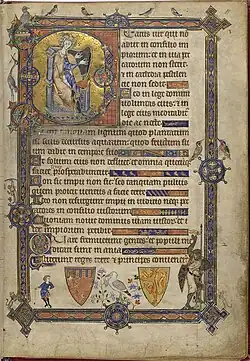 eatus vir qui nō
abiit in consilio im
piorum: et in via pec
catorum non stetit:
et in cathedra pestilen
tie non sedit
Sed in lege domini
voluntas eius: et in
lege eius meditabit
die ac nocte
Et erit tanquam lignum quod plantatum
est secus decursus aquarum: quod fructum su
um dabit in tempore suo
Et folium eius non defluet: et omnia quecun
faciet prosperabuntur
Non sic impii non sic: sed tanquam puluis
quem proicit ventus a facie terre
Ideo non resurgunt impii in iudicio: neq
peccatores in consilio iustorum
Quoniam novit dominus viam iustorum: et i
ter impiorum peribit
Quare fremuerunt gentes: et populi me
ditati sunt inania
Astiterunt reges terre: et principes convene